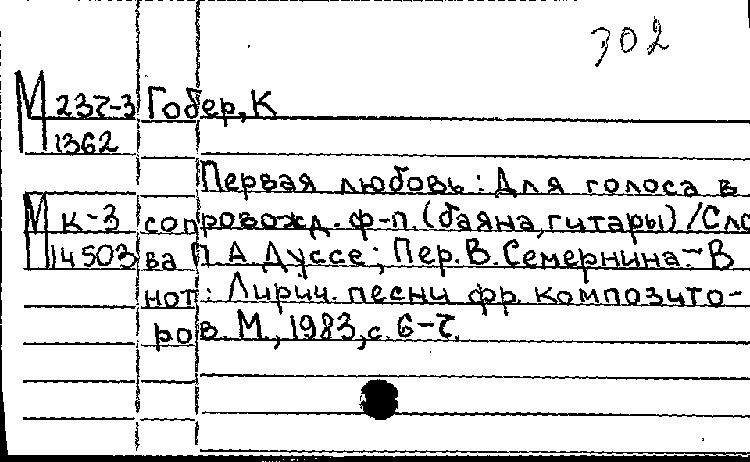 302
М 237-3 Гобер, К
1362
Первая любовь: Для голоса в
М к-3 сопровожд. ф-п. (баяна, гитары) / Сло
14503 ва П.А. Дуссе; Пер. В. Семернина. - В
нот: Лирич. песни фр. композито-
ров. М., 1983, с. 6-7.